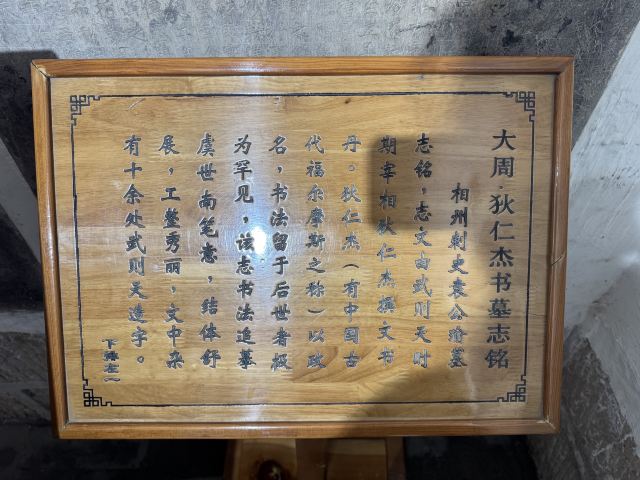 大周·狄仁杰书墓志铭
相州刺史袁公瑜墓
志铭，志文由武则天时
期宰相狄仁杰撰文书
丹。狄仁杰（有中国古
代福尔摩斯之称）以政
名，书法留于后世者极
为罕见，该志书法追摹
虞世南笔意，结体舒
展，工整秀丽，文中杂
有十余处武则天造字。